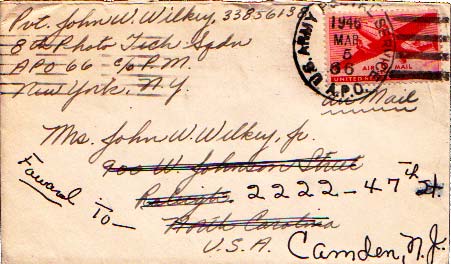 Pvt. John W. Wilkey, 33856138
8th Photo Tech Sqdn
APO 66 c/o P.M.
New York, N.Y.
U.S. ARMY POSTAL SERVICE
1946
MAR
6
A.P.O.
AIR MAIL
UNITED STATES
Air Mail
Mrs. John W. Wilkey, Jr.
900 W. Johnson Street
Raleigh 2222-47th St.
North Carolina
U.S.A.
Camden, N.J.
Foward To